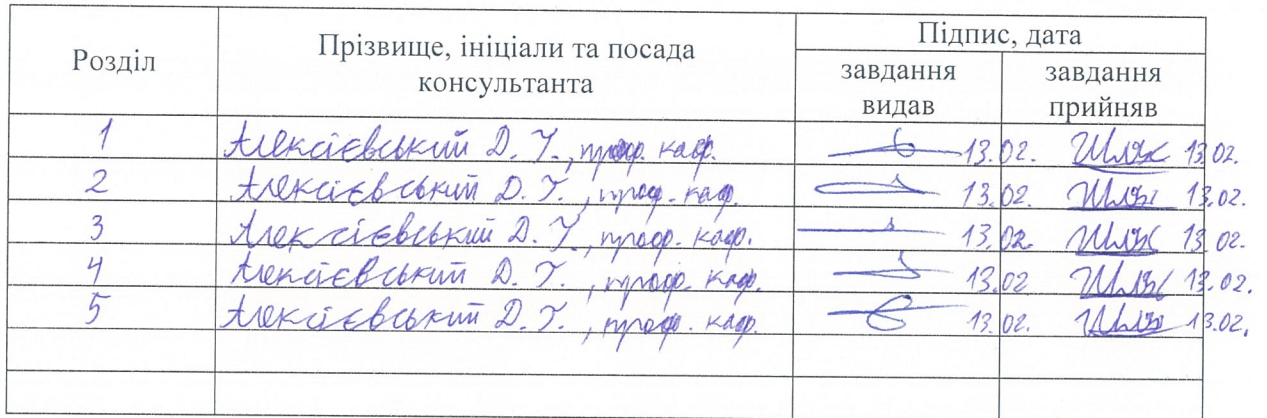 Розділ Прізвище, ініціали та посада консультанта Підпис, дата
завдання видав завдання прийняв
1 Алексієвський Д. Г., проф. каф. 13.02. 13.02.
2 Алексієвський Д. Г., проф. каф. 13.02. 13.02.
3 Алексієвський Д. Г., проф. каф. 13.02. 13.02.
4 Алексієвський Д. Г., проф. каф. 13.02 13.02.
5 Алексієвський Д. Г., проф. каф. 13.02. 13.02.